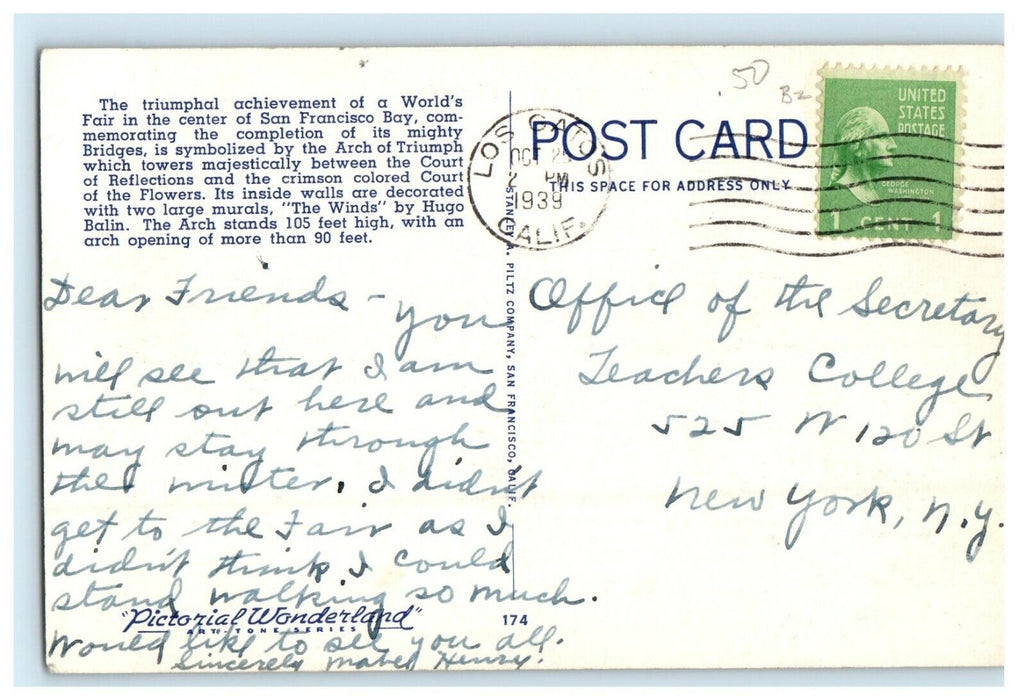 The triumphal achievement of a World's
Fair in the center of San Francisco Bay, com-
memorating the completion of its mighty
Bridges, is symbolized by the Arch of Triumph
which towers majestically between the Court
of Reflections and the crimson colored Court
of the Flowers. Its inside walls are decorated
with two large murals, "The Winds" by Hugo
Balin. The Arch stands 105 feet high, with an
arch opening of more than 90 feet.
Dear Friends -
you
will see that I am
still out here and
may stay through
the winter. I didn't
get to the Fair as I
didn't think I could
stand walking so much.
Would like to see you all.
Sincerely Mabel Henry.
"Pictorial Wonderland"
ART TONE SERIES
174
STANLEY A. PILTZ COMPANY, SAN FRANCISCO, CALIF.
.50
POST CARD
THIS SPACE FOR ADDRESS ONLY
LOS GATOS
OCT
PM
1939
CALIF.
UNITED
STATES
POSTAGE
GEORGE
WASHINGTON
1 CENT 1
Office of the Secretary
Teachers College
525 W 120 St
New York, N.Y.